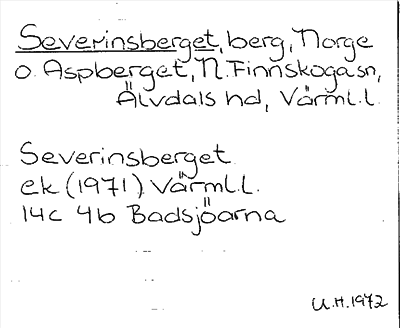 Severinsberget, berg, Norge
o. Aspberget, N. Finnskoga sn,
Älvdals hd, Värml.l.
Severinsberget
ek (1971) Värml.l.
14c 4b Badsjöarna
U.H. 1972